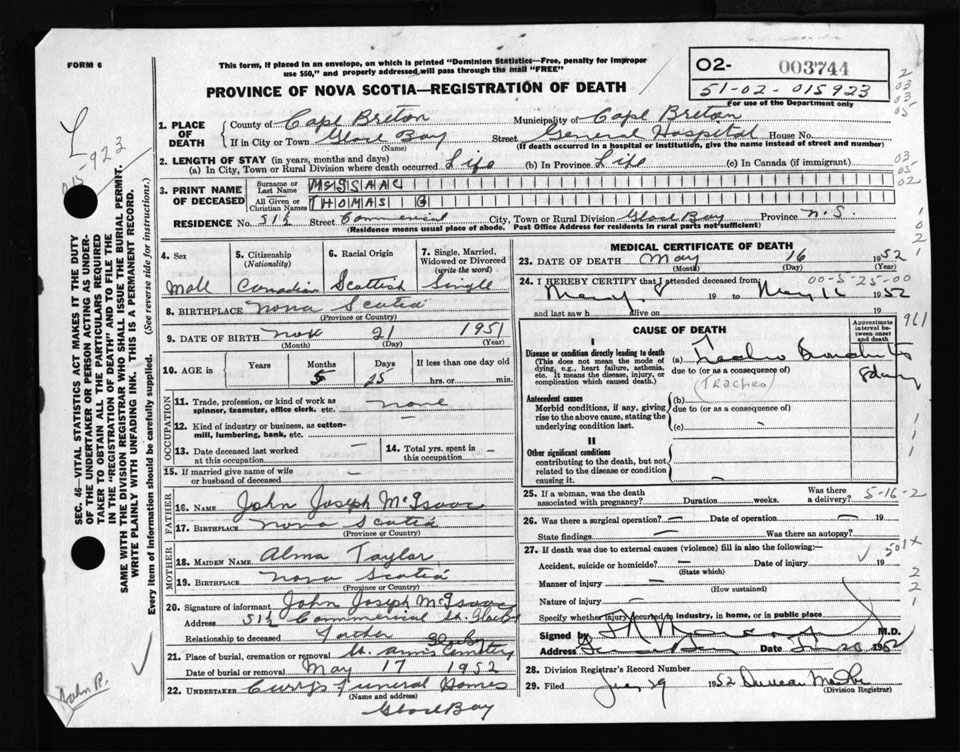 FORM 6
This form, if placed in an envelope, on which is printed "Dominion Statistics—Free, penalty for improper
use $50," and properly addressed will pass through the mail "FREE"
PROVINCE OF NOVA SCOTIA—REGISTRATION OF DEATH
O2- 003744
51-02-015923
For use of the Department only
1. PLACE OF DEATH
County of Cape Breton Municipality of Cape Breton
If in City or Town Glace Bay Street General Hospital House No.
(Name) (If death occurred in a hospital or institution, give the name instead of street and number)
2. LENGTH OF STAY (in years, months and days)
(a) In City, Town or Rural Division where death occurred Life (b) In Province Life (c) In Canada (if immigrant)
3. PRINT NAME OF DECEASED
Surname or Last Name McISAAC
All Given or Christian Names THOMAS G
RESIDENCE No. 51½ Street Commercial City, Town or Rural Division Glace Bay Province N.S.
(Residence means usual place of abode. Post Office Address for residents in rural parts not sufficient)
4. Sex Male
5. Citizenship (Nationality) Canadian
6. Racial Origin Scottish
7. Single, Married, Widowed or Divorced (write the word) Single
8. BIRTHPLACE Nova Scotia
(Province or Country)
9. DATE OF BIRTH Nov 21 1951
(Month) (Day) (Year)
10. AGE in Years Months 5 Days 25 If less than one day old hrs. or min.
OCCUPATION
11. Trade, profession, or kind of work as spinner, teamster, office clerk, etc. none
12. Kind of industry or business, as cotton-mill, lumbering, bank, etc. —
13. Date deceased last worked at this occupation —
14. Total yrs. spent in this occupation —
15. If married give name of wife or husband of deceased —
FATHER
16. Name John Joseph McIsaac
17. Birthplace Nova Scotia
(Province or Country)
MOTHER
18. MAIDEN NAME Alma Taylor
19. BIRTHPLACE Nova Scotia
(Province or Country)
20. Signature of informant John Joseph McIsaac
Address 51½ Commercial St. Glace Bay
Relationship to deceased Father
21. Place of burial, cremation or removal St. Anns Cemetery Glace Bay
Date of burial or removal May 17 1952
22. UNDERTAKER Curry's Funeral Homes
(Name and address)
Glace Bay
MEDICAL CERTIFICATE OF DEATH
23. DATE OF DEATH May 16 1952
(Month) (Day)
24. I HEREBY CERTIFY that I attended deceased from 00-5-25-00
May 8 19 to May 16 1952
and last saw h alive on 19
CAUSE OF DEATH
Approximate interval between onset and death
I
Disease or condition directly leading to death
(This does not mean the mode of dying, e.g., heart failure, asthenia, etc. It means the disease, injury, or complication which caused death.)
(a) Tracheo Bronchitis 8 days
due to (or as a consequence of)
(Tracheo)
Antecedent causes
Morbid conditions, if any, giving rise to the above cause, stating the underlying condition last.
(b)
due to (or as a consequence of)
(c)
II
Other significant conditions
contributing to the death, but not related to the disease or condition causing it.
25. If a woman, was the death associated with pregnancy? Duration weeks. Was there a delivery? 5-16-2
26. Was there a surgical operation? — Date of operation — 19
State findings — Was there an autopsy?
27. If death was due to external causes (violence) fill in also the following:—
Accident, suicide or homicide? — Date of injury 19
(State which)
Manner of injury —
(How sustained)
Nature of injury —
Specify whether injury occurred in industry, in home, or in public place
Signed by M.D.
Address Glace Bay Date 1952
28. Division Registrar's Record Number
29. Filed 29 1952
(Division Registrar)
SEC. 46—VITAL STATISTICS ACT MAKES IT THE DUTY
OF THE UNDERTAKER OR PERSON ACTING AS UNDER-
TAKER TO OBTAIN ALL THE PARTICULARS REQUIRED
IN THE "REGISTRATION OF DEATH" AND TO FILE THE
SAME WITH THE DIVISION REGISTRAR WHO SHALL ISSUE THE BURIAL PERMIT.
WRITE PLAINLY WITH UNFADING INK. THIS IS A PERMANENT RECORD.
Every item of information should be carefully supplied. (See reverse side for instructions.)
015923
John P.
961
501x